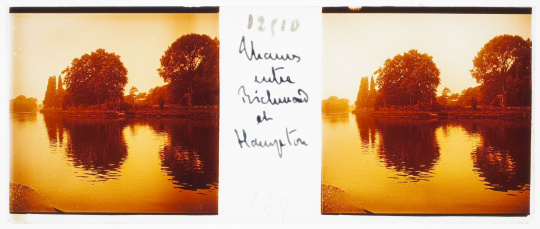 12510
Thames
entre
Richmond
et
Hampton